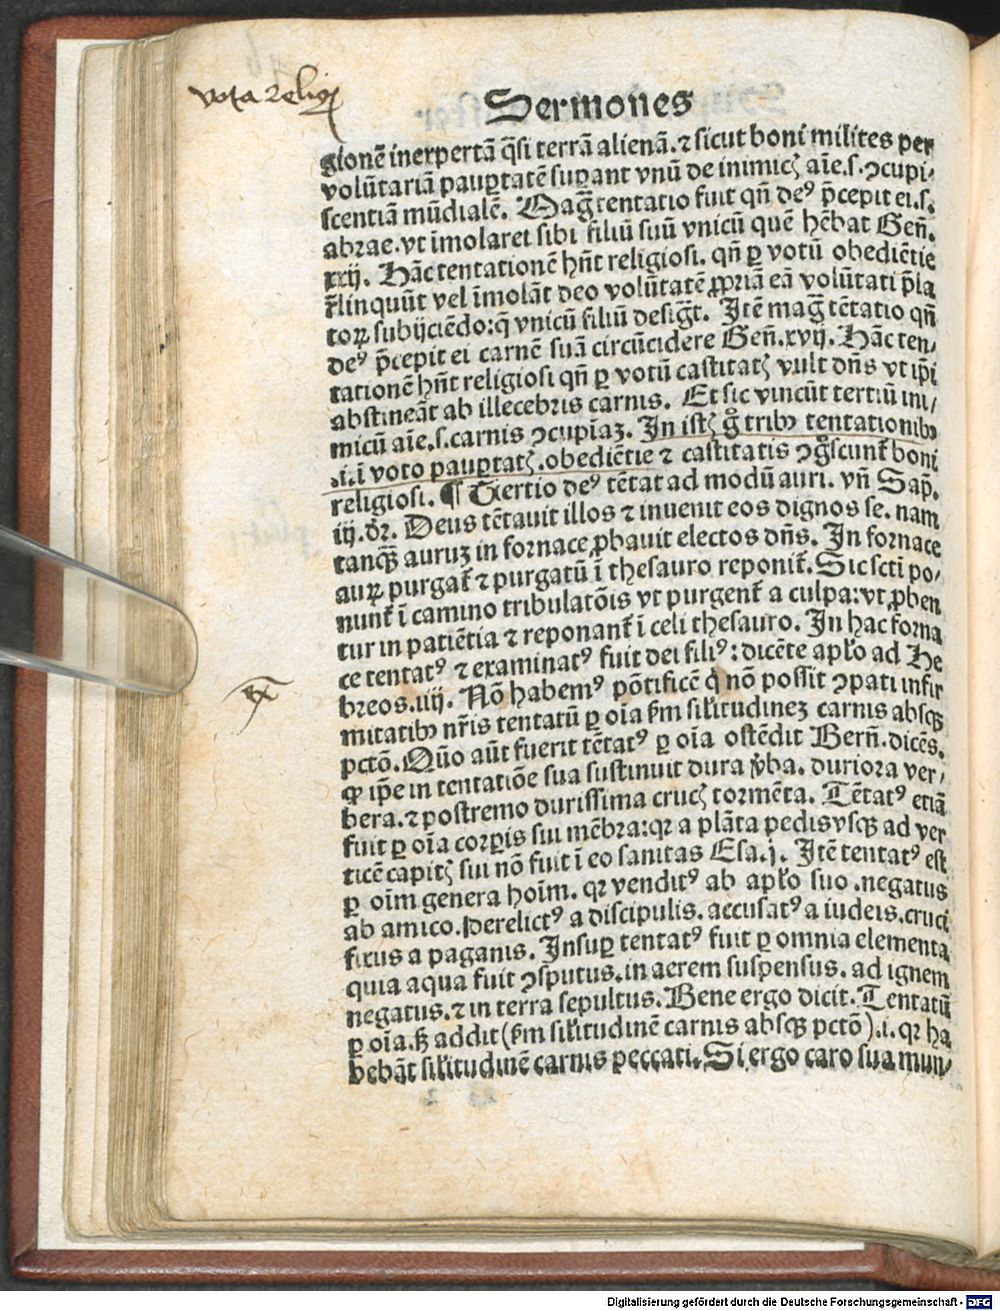 vota religi
Sermones
gionē inexpertā q̄si terrā alienā. ⁊ sicut boni milites per
volūtariā pauꝑtatē suꝑant vnū de inimicꝭ aīe .s. ꝯcupi-
scentiā mūdialē. Maḡ tentatio fuit qn̄ deꝰ p̄cepit ei .s.
abrae. vt īmolaret sibi filiū suū vnicū quē hēbat Geñ.
xxij. Hāc tentationē hn̄t religiosi. qn̄ ꝑ votū obediētie
r̄linquūt vel īmolāt deo volūtatē ꝓpriā eā volūtati p̄la
toꝝ subijciēdo: q̄ vnicū filiū desigt̄. Itē maḡ tētatio qn̄
deꝰ p̄cepit ei carnē suā circūcidere Geñ. xvij. Hāc ten/
tationē hn̄t religiosi qn̄ ꝑ votū castitatꝭ vult dn̄s vt ip̄i
abstineāt ab illecebris carnis. Et sic vincūt tertiū ini/
micū aīe .s. carnis ꝯcupīaꝫ. In istꝭ g̊ tribꝰ tentationibꝰ
.i. ī voto pauꝑtatꝭ. obediētie ⁊ castitatis ꝯg̊scunt̄ boni
religiosi. ¶ Tertio deꝰ tētat ad modū auri. vn̄ Sap̄.
iij. dr̄. Deus tētauit illos ⁊ inuenit eos dignos se. nam
tanqꝫ̄ auruꝫ in fornace ꝓbauit electos dn̄s. In fornace
auꝝ purgat̄ ⁊ purgatū ī thesauro reponit̄. Sic scti po/
nunt̄ ī camino tribulatōis vt purgent̄ a culpa: vt ꝓben
tur in patiētia ⁊ reponant̄ ī celi thesauro. In hac forna
ce tentatꝰ ⁊ examinatꝰ fuit dei filiꝰ: dicēte apl̄o ad He
breos. iiij. Nō habemꝰ pōtificē q̇ nō possit ꝯpati infir
mitatibꝰ nr̄is tentatū ꝑ oīa ẜm sil̄itudineꝫ carnis absqꝫ
pctō. Quō aūt fuerit tētatꝰ ꝑ oīa ostēdit Berñ. dicēs.
ꝙ ip̄e in tentatiōe sua sustinuit dura v̄ba. duriora ver/
bera. ⁊ postremo durissima crucꝭ tormēta. Tētatꝰ etiā
fuit ꝑ oīa corꝑis sui mēbra: qꝛ a plāta pedis vsqꝫ ad ver
ticē capitꝭ sui nō fuit ī eo sanitas Esa. j. Itē tentatꝰ est
ꝑ oīm genera hoīm. qꝛ venditꝰ ab apl̄o suo. negatus
ab amico. Derelictꝰ a discipulis. accusatꝰ a iudeis. cruci
fixus a paganis. Insuꝑ tentatꝰ fuit ꝑ omnia elementa
quia aqua fuit ꝯsputus. in aerem suspensus. ad ignem
negatus. ⁊ in terra sepultus. Bene ergo dicit. Tentatū
ꝑ oīa. sꝫ addit (ẜm sil̄itudinē carnis absqꝫ pctō) .i. qꝛ ha
bebāt sil̄itudinē carnis peccati. Si ergo caro sua mun/
Digitalisierung gefördert durch die Deutsche Forschungsgemeinschaft - DFG